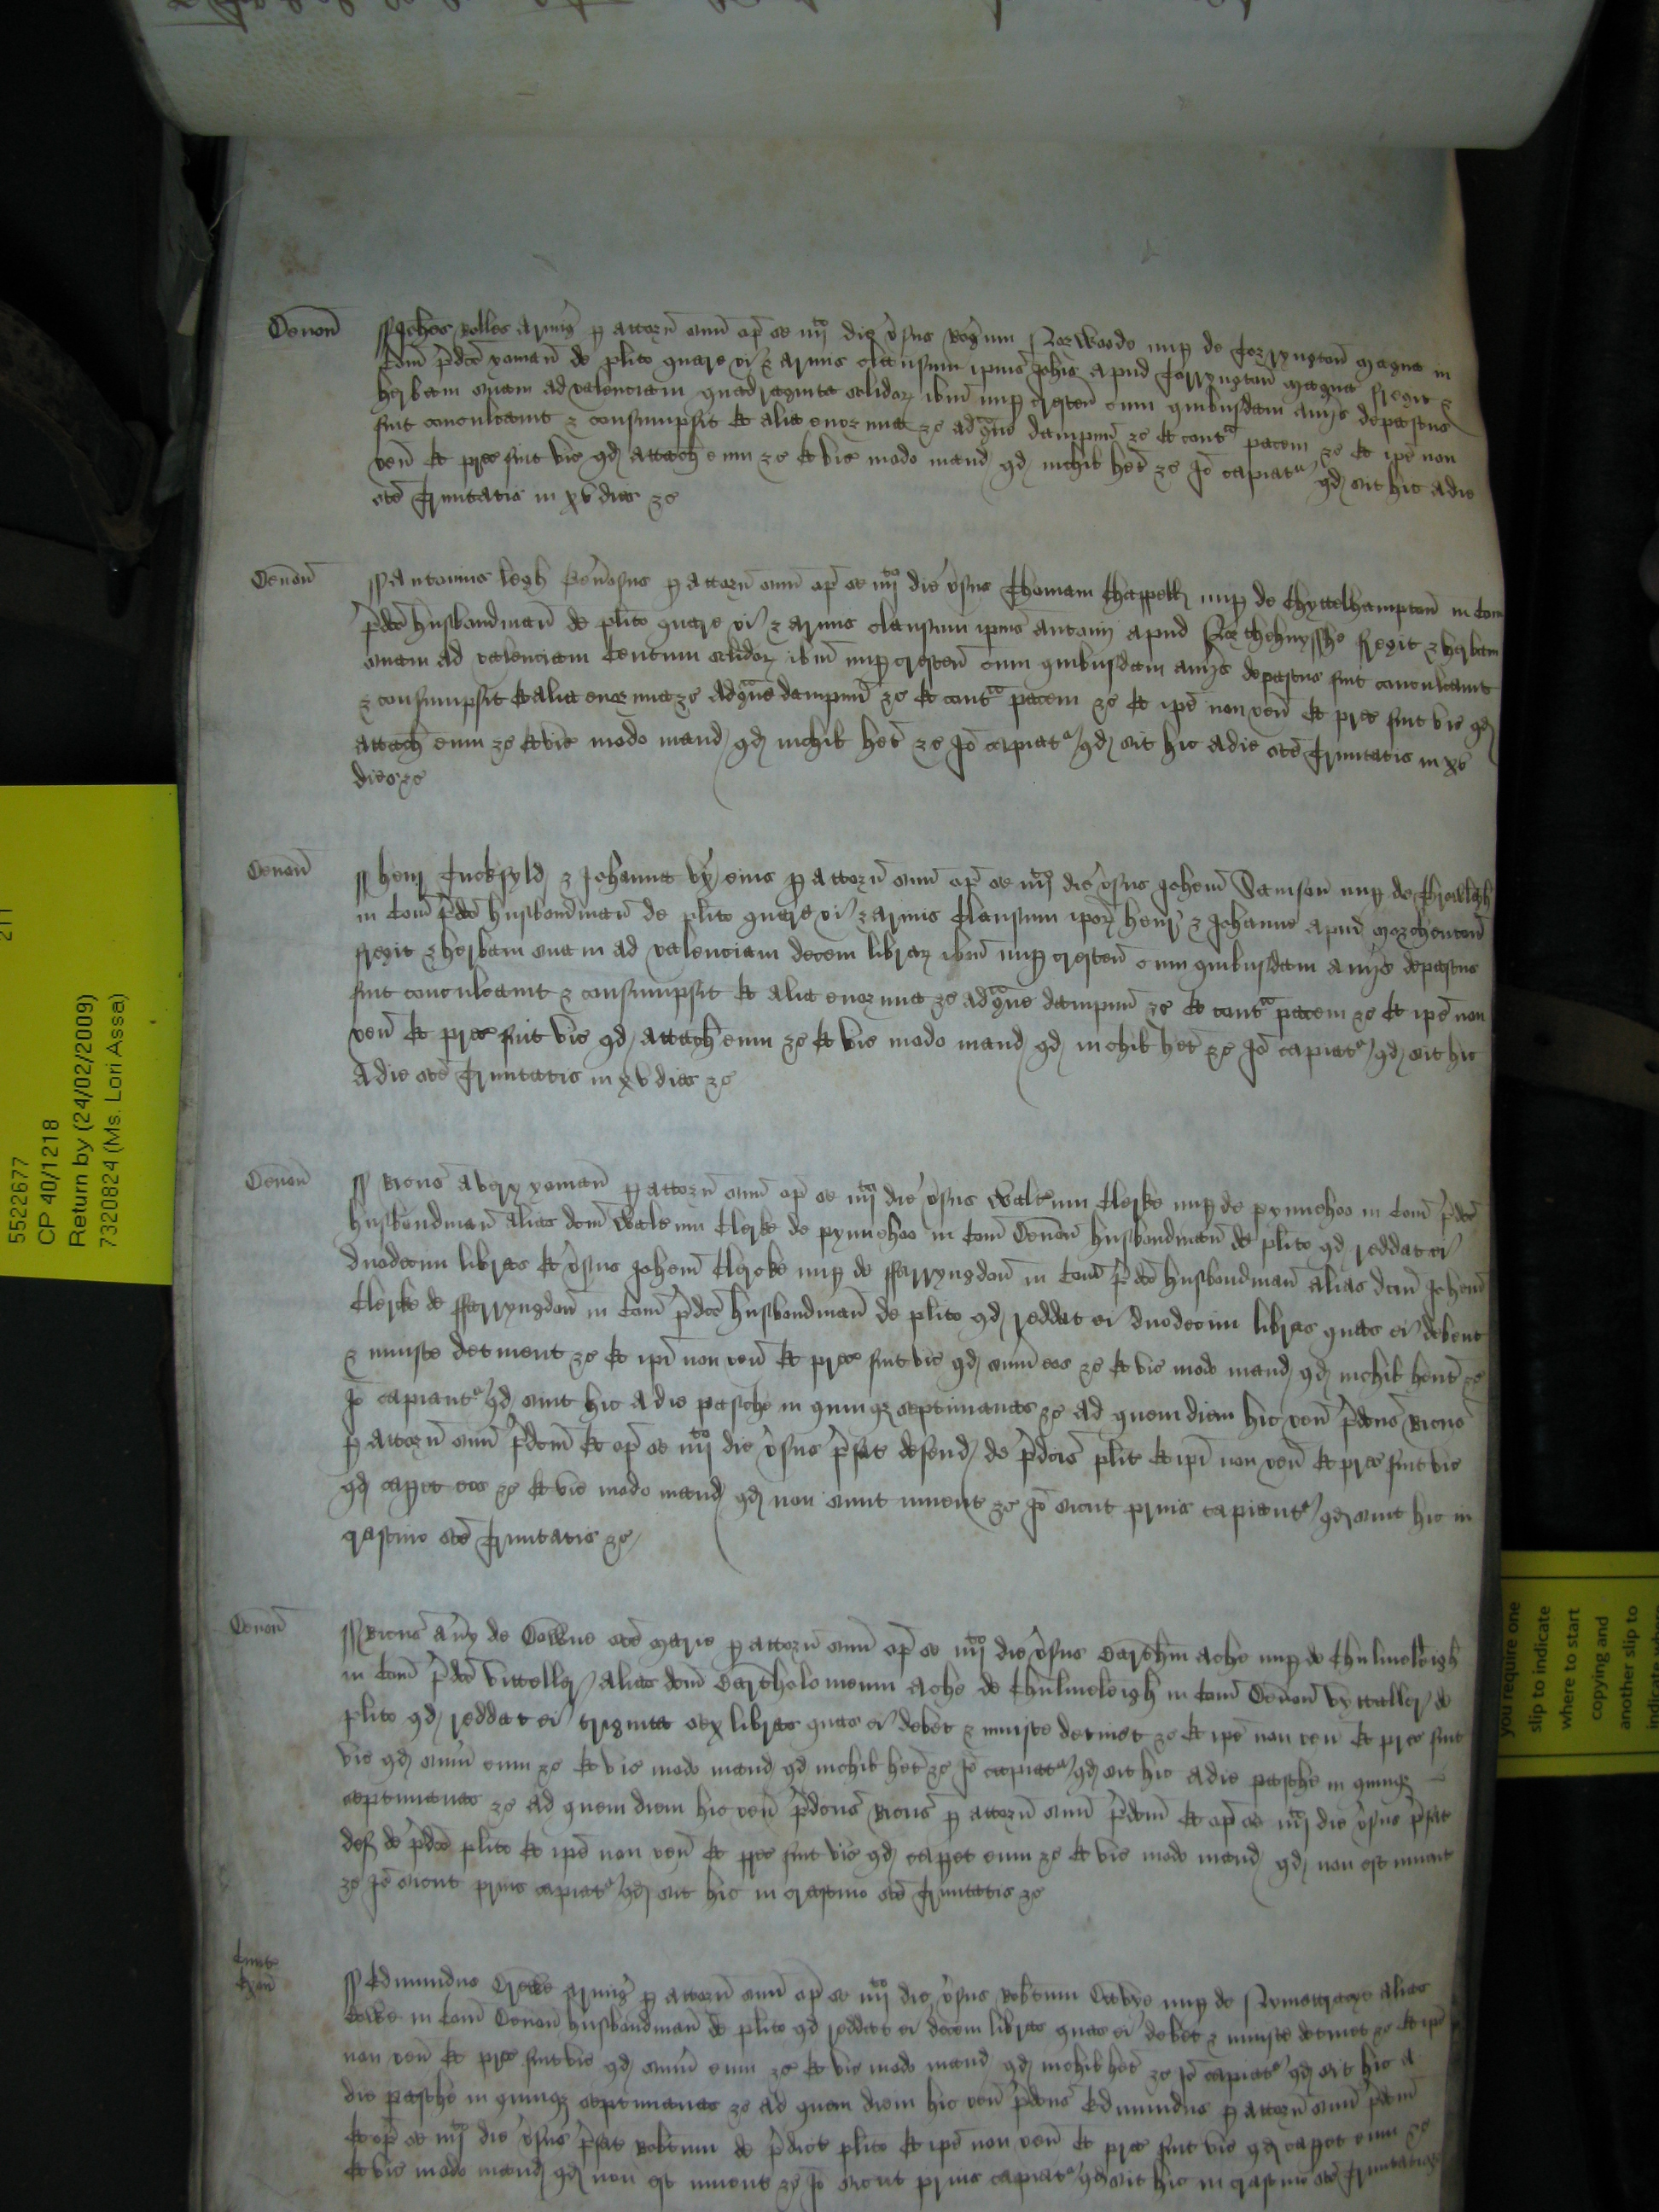 Devon
Johes Rolles Armig p attorn suu op se iiijto die vsus Rogum Norwoode nup de Torryngton Magna in
Com pdco yoman de plito quare vi & armis clausum ipius Johis apud Torryngton Magna fregit &
herbam suam ad valenciam quadraginta solidor ibm nup crescen cum quibusdam aiijs depastus
fuit conculcavit & consumpsit Et alia enormia &c ad gve dampnu &c Et contra pacem &c Et ipe non
ven Et prec fuit vic qd attach eum &c Et vic modo mand qd nichil het &c Io capiatr qd sit hic a die
sce Trinitatis in xv dies &c
Devon
Antonius legh Genosus p attorn suu op se iiijto die vsus Thomam Chappell nup de Chyttelhampton in Com
pdco husbondman de plito quare vi & armis clausum ipius Antonij apud fregit & herbam
suam ad valenciam Centum solidor ibm nup crescen cum quibusdam aiijs depastus fuit conculcavit
& consumpsit Et alia enormia &c Ad gve dampnu &c Et contra pacem &c Et ipe non ven Et prec fuit vic qd
attach eum &c Et vic modo mand qd nichil het &c Io capiatr qd sit hic a die sce Trinitatis in xv
dies &c
Devon
Henr Tuckfyld & Johanna vx eius p attorn suu op se iiijto die vsus Johem Samson nup de
in Com pdco husbondman de plito quare vi & armis Clausum ipor Henr & Johanne apud Morchenton
fregit & herbam suam ad valenciam decem librar ibm nup crescen cum quibusdam aiijs depastus
fuit conculcavit & consumpsit Et alia enormia &c ad gve dampnu &c Et contra pacem &c Et ipe non
ven Et prec fuit vic qd attach eum &c Et vic modo mand qd nichil het &c Io capiatr qd sit hic
a die sce Trinitatis in xv dies &c
Devon
Ricus Avery yoman p attorn suu op se iiijto die vsus Waltum Clerke nup de Pynnehoo in Com pdco
husbondman alias dcm Waltum Clerke de Pynnehoo in Com Devon husbondman de plito qd reddat ei
duodecim libras Et vsus Johem Clercke nup de ffarryngdon in Com pdco husbondman alias dcm Johem
Clercke de ffarryngdon in Com pdco husbondman de plito qd reddat ei duodecim libras quas ei debent
& iniuste detinent &c Et ipi non ven Et prec fuit vic qd sum eos &c Et vic modo mand qd nichil hent &c
Io capiantr qd sint hic a die pasche in quinqz septimanas &c Ad quem diem hic ven pdcus Ricus
p attorn suu pdcm Et op se iiijto die vsus pfat defend de pdcis plit Et ipi non ven Et prec fuit vic
qd capet eos &c Et vic modo mand qd non sunt invent &c Io sicut prius capiantr qd sint hic in
crastino sce Trinitatis &c
Devon
Ricus Avy de Downe sce Marie p attorn suu op se iiijto die vsus Barthm Ashe nup de Chulmeleigh
in Com pdco vitteller alias dcm Bartholomeum Ashe de Chulmeleigh in Com Devon vyttaller de
plito qd reddat ei triginta sex libras quas ei debet & iniuste detinet &c Et ipe non ven Et prec fuit
vic qd sum eum &c Et vic modo mand qd nichil het &c Io capiatr qd sit hic a die pasche in quinqz
septimanas &c Ad quem diem hic ven pdcus Ricus p attorn suu pdcm Et op se iiijto die vsus pfat
def de pdco plito Et ipe non ven Et prec fuit vic qd capet eum &c Et vic modo mand qd non est invent
&c Io sicut prius capiatr qd sit hic in crastino sce Trinitatis &c
Civit
Exon
Edmundus Crewe Armig p attorn suu op se iiijto die vsus Robtum nup de alias
in Com Devon husbondman de plito qd reddat ei decem libras quas ei debet & iniuste detinet &c Et ipe
non ven Et prec fuit vic qd sum eum &c Et vic modo mand qd nichil het &c Io capiatr qd sit hic a
die pasche in quinqz septimanas &c Ad quem diem hic ven pdcus Edmundus p attorn suu pdcm
Et op se iiijto die vsus pfat Robtum de pdict plito Et ipe non ven Et prec fuit vic qd capet eum &c
Et vic modo mand qd non est invent &c Io sicut prius capiatr qd sit hic in crastino sce Trinitatis
211
5522677
CP 40/1218
Return by (24/02/2009)
7320824 (Ms. Lori Assa)
you require one
slip to indicate
where to start
copying and
another slip to
indicate where